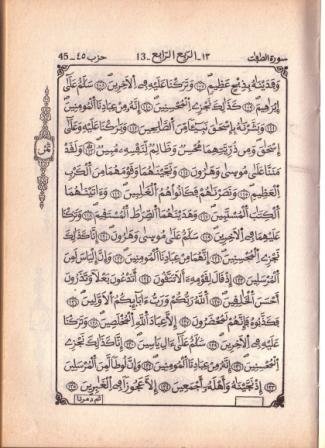 سورة الصافات ١٣-الربع الرابع-13 حزب ٤٥-45
وَفَدَيْنَٰهُ بِذِبْحٍ عَظِيمٍ ١٠٧ وَتَرَكْنَا عَلَيْهِ فِي الْأَخِرِينَ ١٠٨ سَلَٰمٌ عَلَىٰ
إِبْرَٰهِيمَ ١٠٩ كَذَٰلِكَ نَجْزِي الْمُحْسِنِينَ ١١٠ إِنَّهُ مِنْ عِبَادِنَا الْمُومِنِينَ
١١١ وَبَشَّرْنَٰهُ بِإِسْحَٰقَ نَبِيئًا مِّنَ الصَّٰلِحِينَ ١١٢ وَبَٰرَكْنَا عَلَيْهِ وَعَلَىٰ
إِسْحَٰقَ وَمِن ذُرِّيَّتِهِمَا مُحْسِنٌ وَظَالِمٌ لِّنَفْسِهِ مُبِينٌ ١١٣ وَلَقَدْ
مَنَنَّا عَلَىٰ مُوسَىٰ وَهَٰرُونَ ١١٤ وَنَجَّيْنَٰهُمَا وَقَوْمَهُمَا مِنَ الْكَرْبِ
الْعَظِيمِ ١١٥ وَنَصَرْنَٰهُمْ فَكَانُوا هُمُ الْغَٰلِبِينَ ١١٦ وَءَاتَيْنَٰهُمَا
الْكِتَٰبَ الْمُسْتَبِينَ ١١٧ وَهَدَيْنَٰهُمَا الصِّرَٰطَ الْمُسْتَقِيمَ ١١٨ وَتَرَكْنَا
عَلَيْهِمَا فِي الْأَخِرِينَ ١١٩ سَلَٰمٌ عَلَىٰ مُوسَىٰ وَهَٰرُونَ ١٢٠ إِنَّا كَذَٰلِكَ
نَجْزِي الْمُحْسِنِينَ ١٢١ إِنَّهُمَا مِنْ عِبَادِنَا الْمُومِنِينَ ١٢٢ وَإِنَّ إِلْيَاسَ لَمِنَ
الْمُرْسَلِينَ ١٢٣ إِذْ قَالَ لِقَوْمِهِ أَلَا تَتَّقُونَ ١٢٤ أَتَدْعُونَ بَعْلًا وَتَذَرُونَ
أَحْسَنَ الْخَٰلِقِينَ ١٢٥ اللَّهُ رَبُّكُمْ وَرَبُّ ءَابَائِكُمُ الْأَوَّلِينَ ١٢٦
فَكَذَّبُوهُ فَإِنَّهُمْ لَمُحْضَرُونَ ١٢٧ إِلَّا عِبَادَ اللَّهِ الْمُخْلَصِينَ ١٢٨ وَتَرَكْنَا
عَلَيْهِ فِي الْأَخِرِينَ ١٢٩ سَلَٰمٌ عَلَىٰ ءَالِ يَاسِينَ ١٣٠ إِنَّا كَذَٰلِكَ نَجْزِي
الْمُحْسِنِينَ ١٣١ إِنَّهُ مِنْ عِبَادِنَا الْمُومِنِينَ ١٣٢ وَإِنَّ لُوطًا لَّمِنَ الْمُرْسَلِينَ
١٣٣ إِذْ نَجَّيْنَٰهُ وَأَهْلَهُ أَجْمَعِينَ ١٣٤ إِلَّا عَجُوزًا فِي الْغَٰبِرِينَ ١٣٥
ثم دمرنا
ثمن